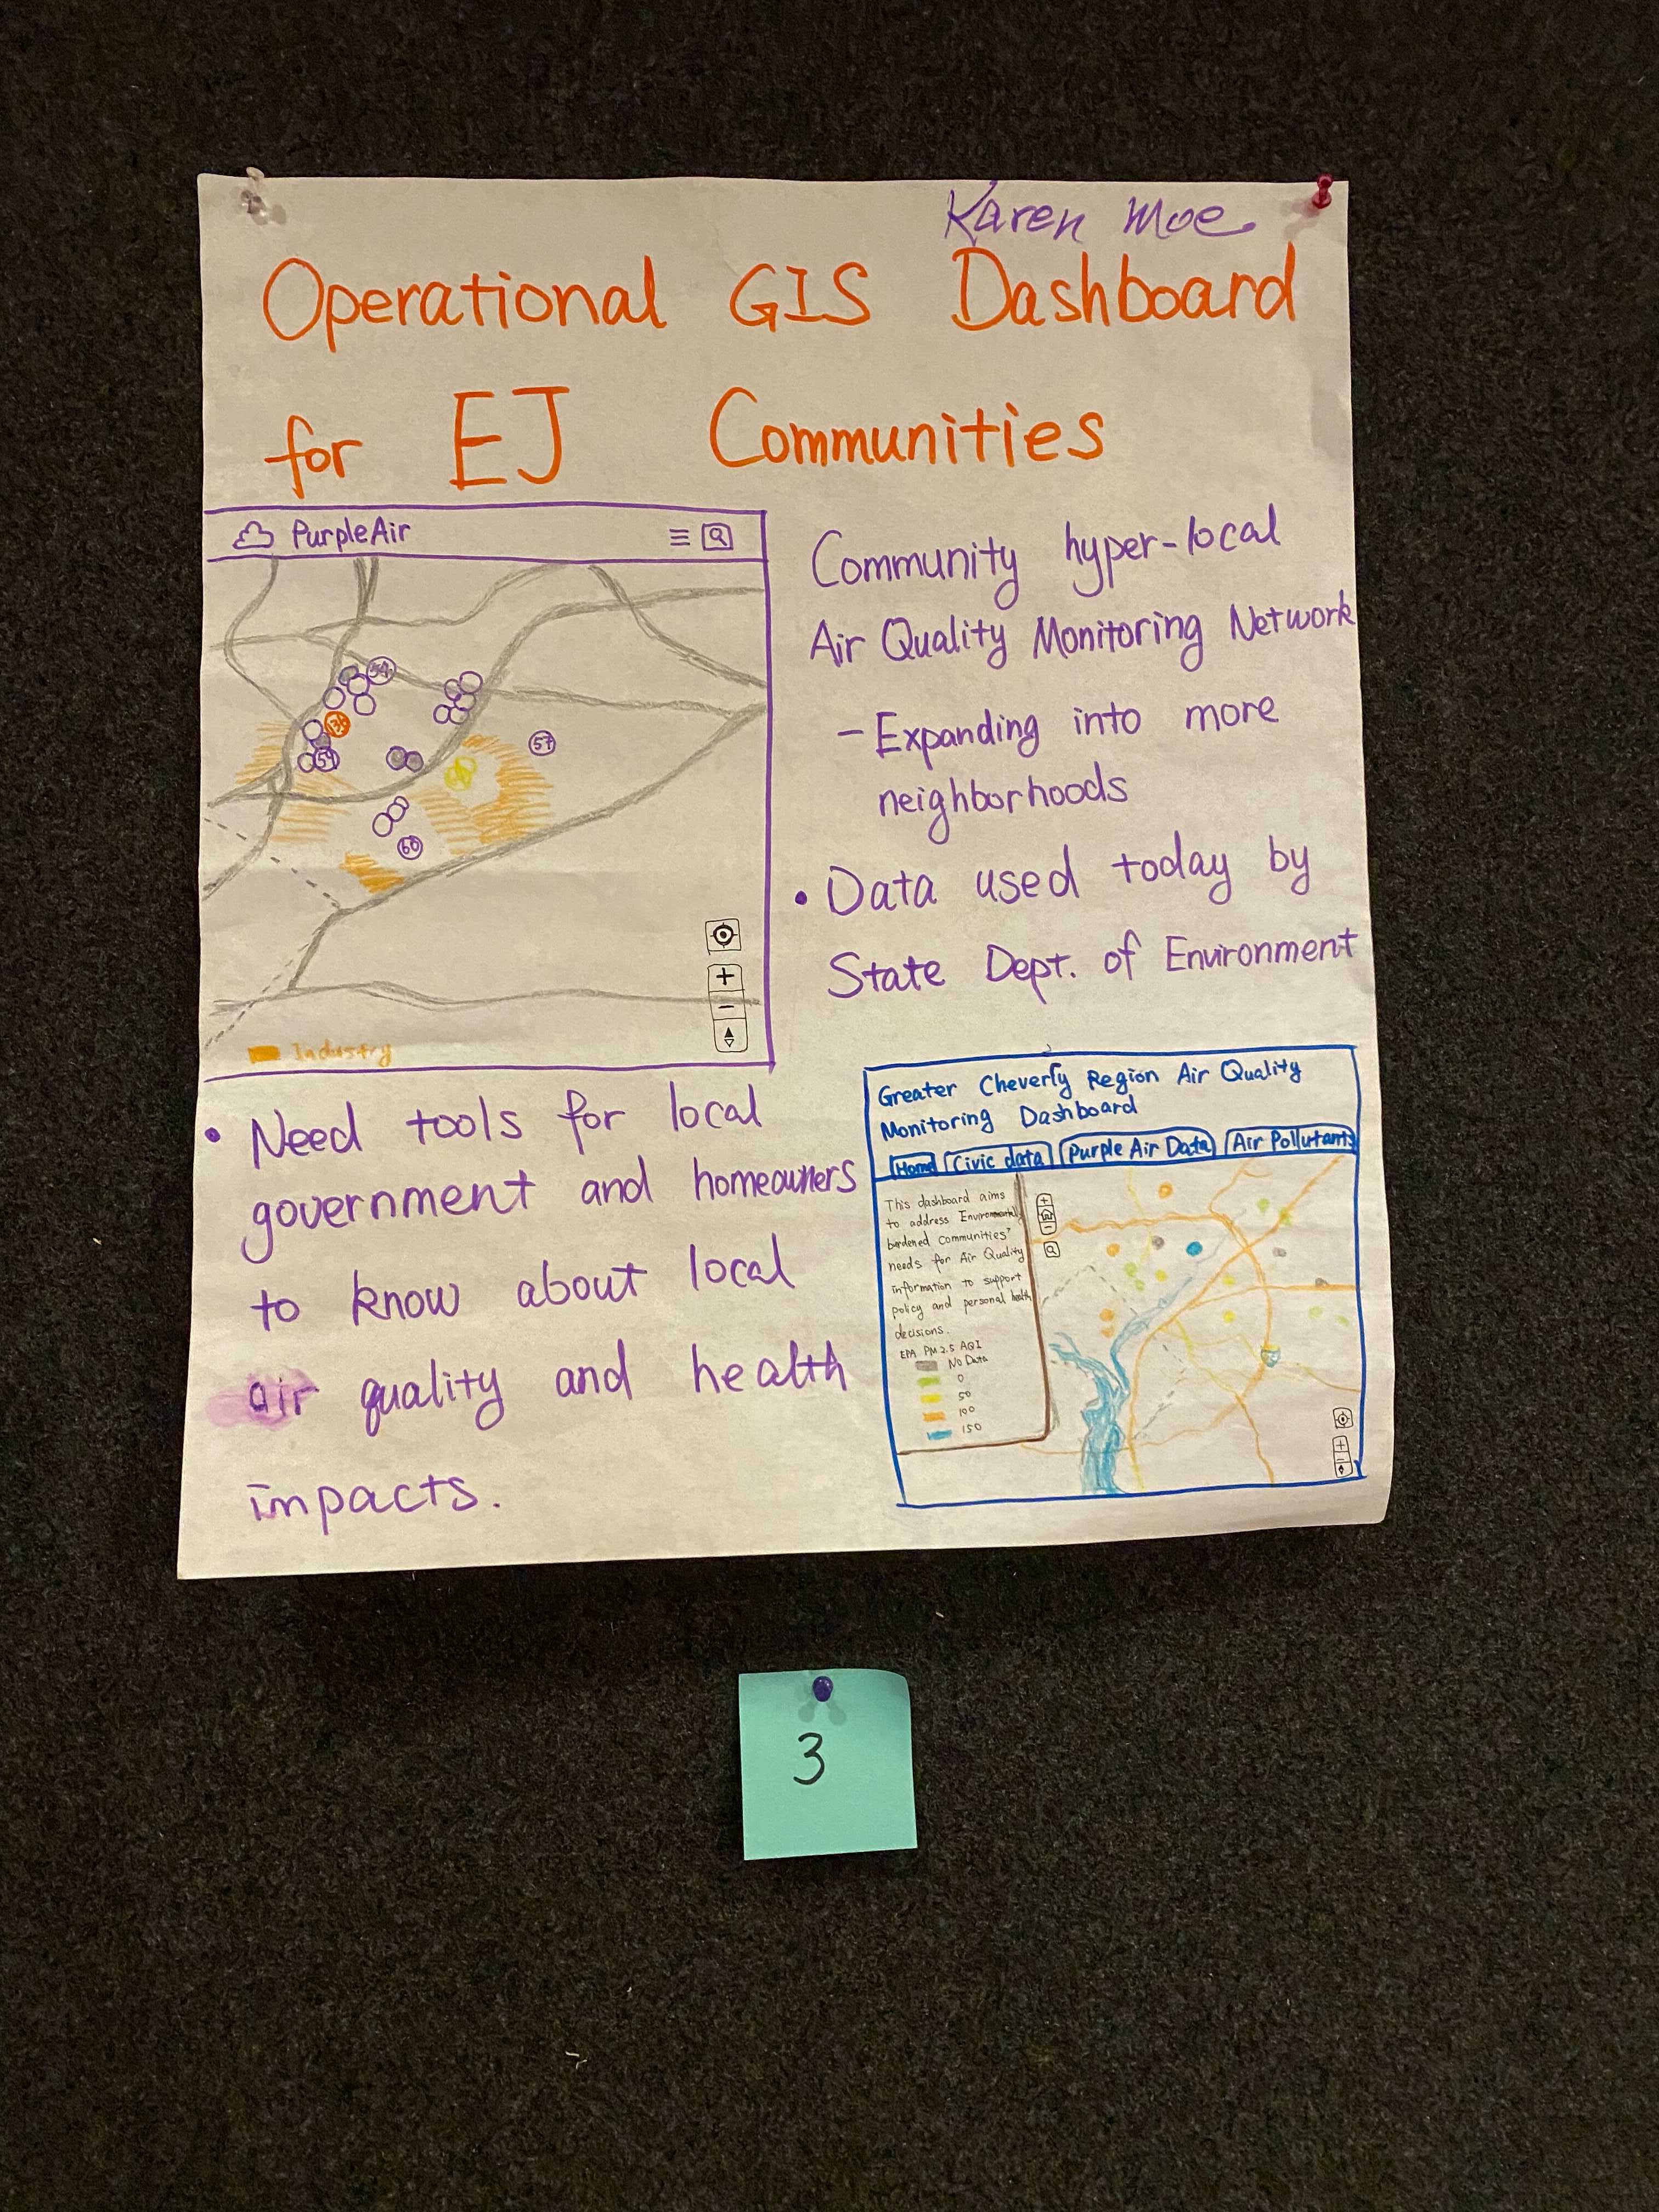 Karen Moe
Operational GIS Dashboard
for EJ Communities
PurpleAir
54
59
57
60
Industry
Community hyper-local
Air Quality Monitoring Network
- Expanding into more
neighborhoods
• Data used today by
State Dept. of Environment
• Need tools for local
government and homeowners
to know about local
air quality and health
impacts.
Greater Cheverly Region Air Quality
Monitoring Dashboard
Home Civic data Purple Air Data Air Pollutants
This dashboard aims
to address Environmental
burdened communities'
needs for Air Quality
information to support
policy and personal health
decisions.
EPA PM 2.5 AQI
No Data
0
50
100
150
3